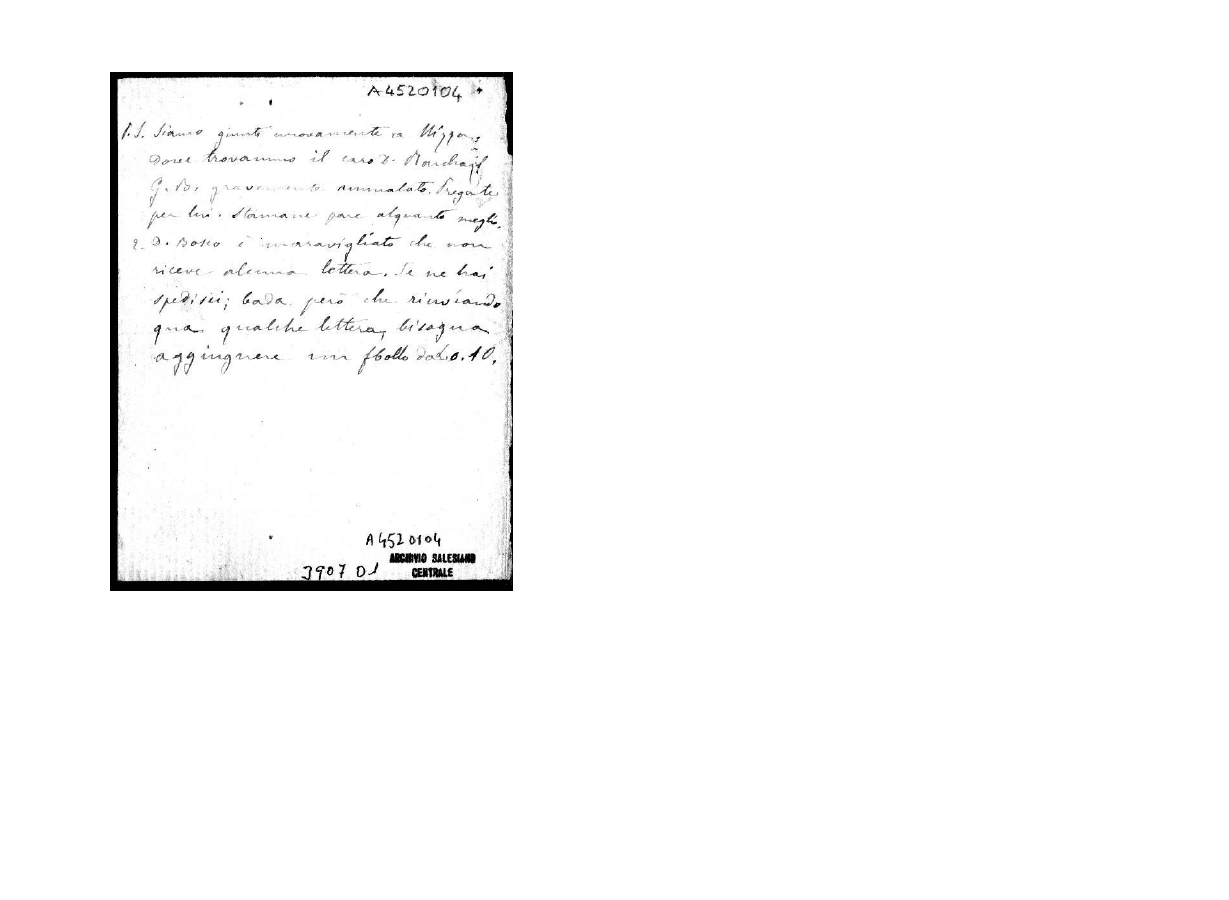 A4520104
P.S. Siamo giunti nuovamente a Nizza
dove trovammo il caro D.
G. B. gravemente ammalato. Pregate
per lui. Stamane pare alquanto meglio.
2. D. Bosco è maravigliato che non
riceve alcuna lettera. Se ne hai
spedisci; bada però che rinviando
qua qualche lettera, bisogna
aggiugnere un fbollo da L. 0. 10.
A4520104
ARCHIVIO SALESIANO
CENTRALE
3907 D1